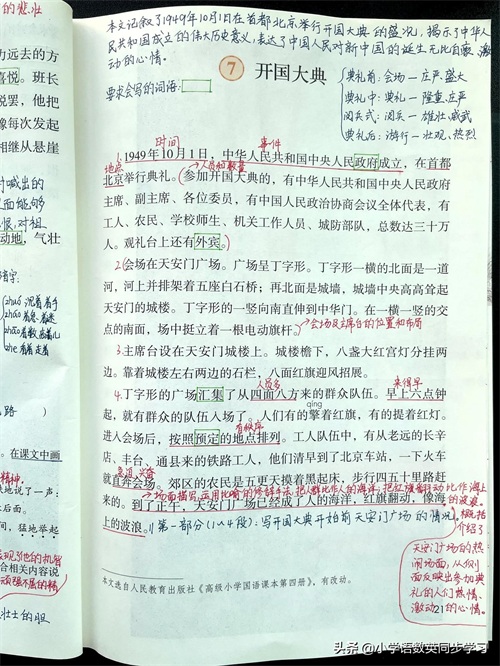 本文记叙了1949年10月1日在首都北京举行开国大典的盛况，揭示了中华人
民共和国成立的伟大历史意义，表达了中国人民对新中国的诞生无比自豪、激
动的心情。
7 开国大典
典礼前：会场—庄严、盛大
典礼中：典礼—隆重、庄严
阅兵式：阅兵—雄壮、威武
典礼后：游行—壮观、热烈
要求会写的词语：
时间
事件
1.1949年10月1日，中华人民共和国中央人民政府成立，在首都
地点
人员和数量
北京举行典礼。参加开国大典的，有中华人民共和国中央人民政府
主席、副主席、各位委员，有中国人民政治协商会议全体代表，有
工人、农民、学校师生、机关工作人员、城防部队，总数达三十万
人。观礼台上还有外宾。
2.会场在天安门广场。广场呈丁字形。丁字形一横的北面是一道
河，河上并排架着五座白石桥；再北面是城墙，城墙中央高高耸起
天安门的城楼。丁字形的一竖向南直伸到中华门。在一横一竖的交
点的南面，场中挺立着一根电动旗杆。
会场及主席台的位置和布局
3.主席台设在天安门城楼上。城楼檐下，八盏大红宫灯分挂两
边。靠着城楼左右两边的石栏，八面红旗迎风招展。
人员多
来得早
4.丁字形的广场汇集了从四面八方来的群众队伍。早上六点钟
qíng
起，就有群众的队伍入场了。人们有的擎着红旗，有的提着红灯。
有秩序
进入会场后，按照预定的地点排列。工人队伍中，有从老远的长辛
店、丰台、通县来的铁路工人，他们清早到了北京车站，一下火车
就直奔会场。郊区的农民是五更天摸着黑起床，步行四五十里路赶
场面描写，运用比喻的修辞手法，把人群比作人的海洋，把红旗翻动比作海上
的波浪，
来的。到了正午，天安门广场已经成了人的海洋，红旗翻动，像海
上的波浪。
第一部分(1～4段)：写开国大典开始前天安门广场的情况。
概括
介绍了
天安门广场的热
闹场面，从侧
面反映出参加典
礼的人们热情、
激动的心情。
本文选自人民教育出版社《高级小学国语课本第四册》，有改动。
21
的悲壮
力远去的方
喜悦。班长
说罢，他把
像每次发起
相继从悬崖
时喊出的
动地，气壮
zhuó 沉着 着手
zháo 着急 着迷
zhe 看着 走着
路 ）
。在课文中画
精神，
地说了一声：
后面。
间，猛地举起
表现了他的机智
合相关内容说
顽强不屈的精
壮士的胆
头条 @小学语数英同步学习